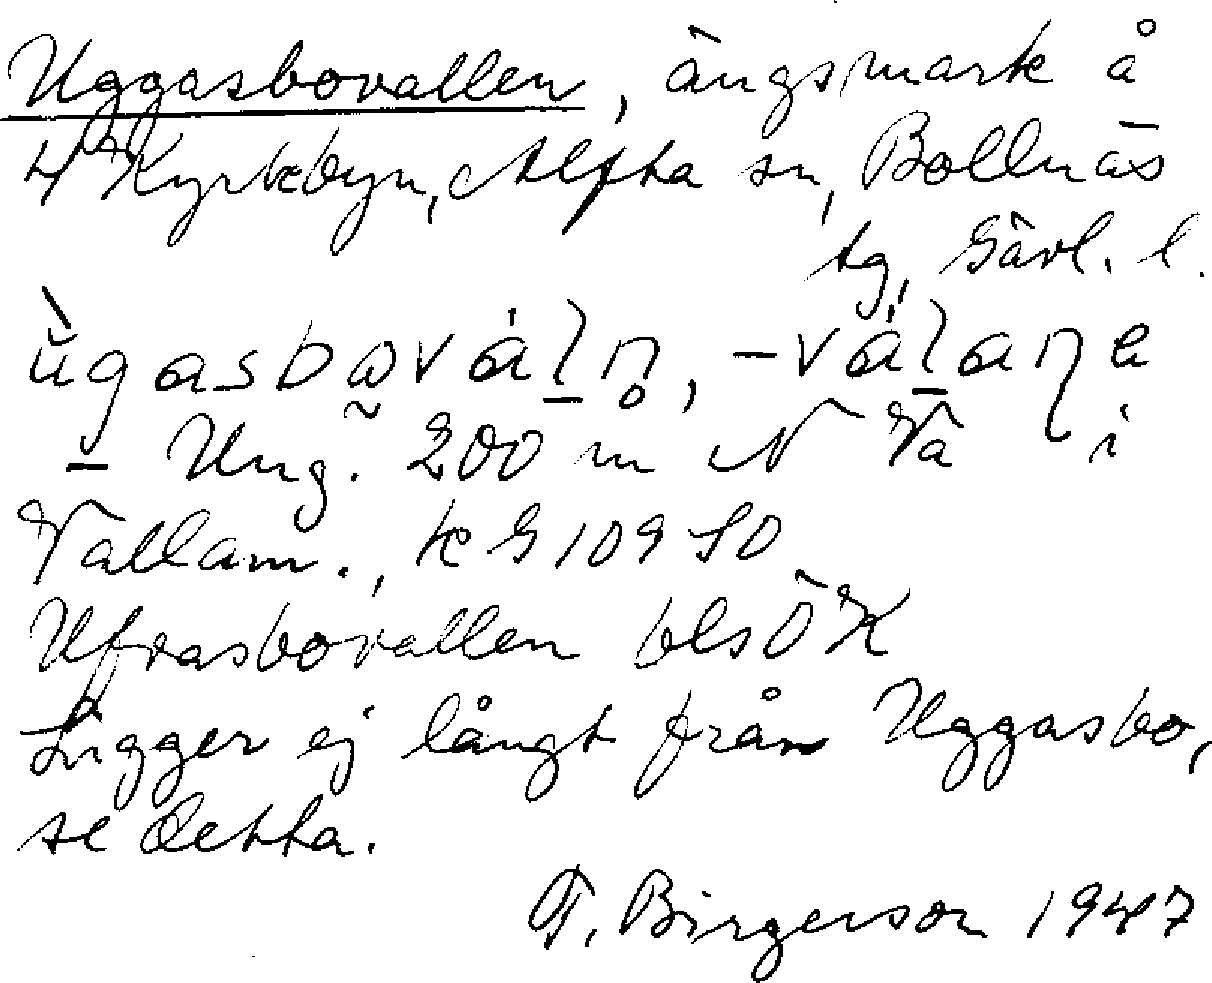 Uggasbovallen, ängsmark å
4 Kyrkbyn, Alfta sn, Bollnäs
tg, Gävl. l.
– Ung. 200 m N Va i
Vallam., k G 109 SO
Ufrasbovallen bls ÖK
Ligger ej långt från Uggasbo,
se detta.
F. Birgerson 1947